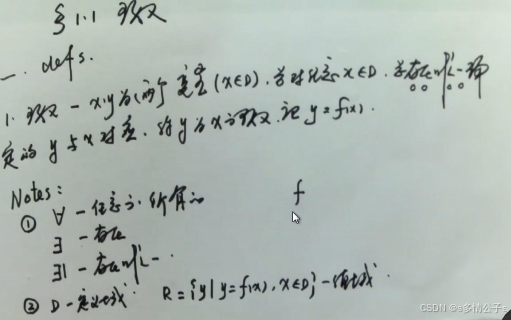 §1.1 函数
一. defs.
1. 函数 - x, y 为两个变量 (x∈D). 若对任意 x∈D. 若存在唯一确
定的 y 与 x 对应. 称 y 为 x 的函数. 记 y = f(x).
Notes:
f
① ∀ - 任意的. 所有的
∃ - 存在
∃| - 存在唯一.
② D - 定义域. R = {y | y = f(x), x∈D} - 值域.
CSDN @s多情公子s